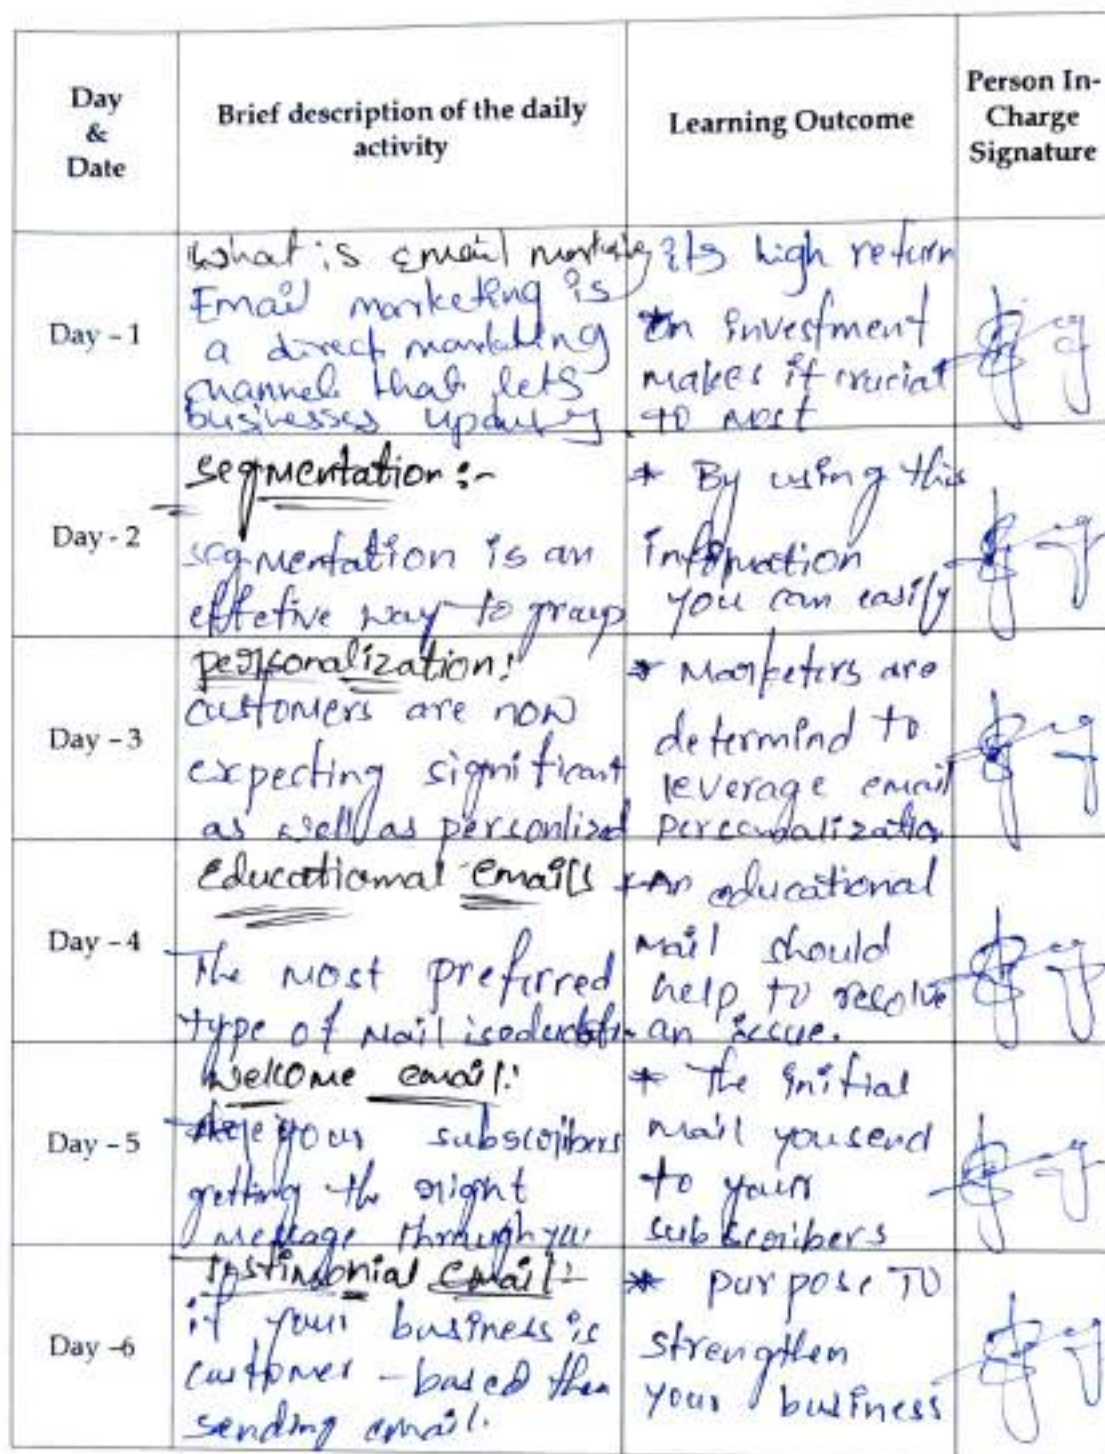 Day
&
Date
Brief description of the daily
activity
Learning Outcome
Person In-
Charge
Signature
Day - 1
What is email
Email marketing is
a direct marketing
channel that lets
businesses
its high return
* on investment
makes it crucial
to most
Day - 2
segmentation :-
segmentation is an
effetive way to group
* By using this
information
you can easily
Day - 3
personalization:
customers are now
expecting significant
as well as personlized
* Marketers are
determind to
leverage email
personalization
Day - 4
Educational Emails
The most preferred
type of mail is
* An educational
mail should
help to resolve
an issue.
Day - 5
Welcome email:
your subscribers
getting the right
message through you
* The initial
mail you send
to your
subscribers
Day -6
Email:-
if your business is
customer - based then
sending email.
* purpose To
strengthen
your business